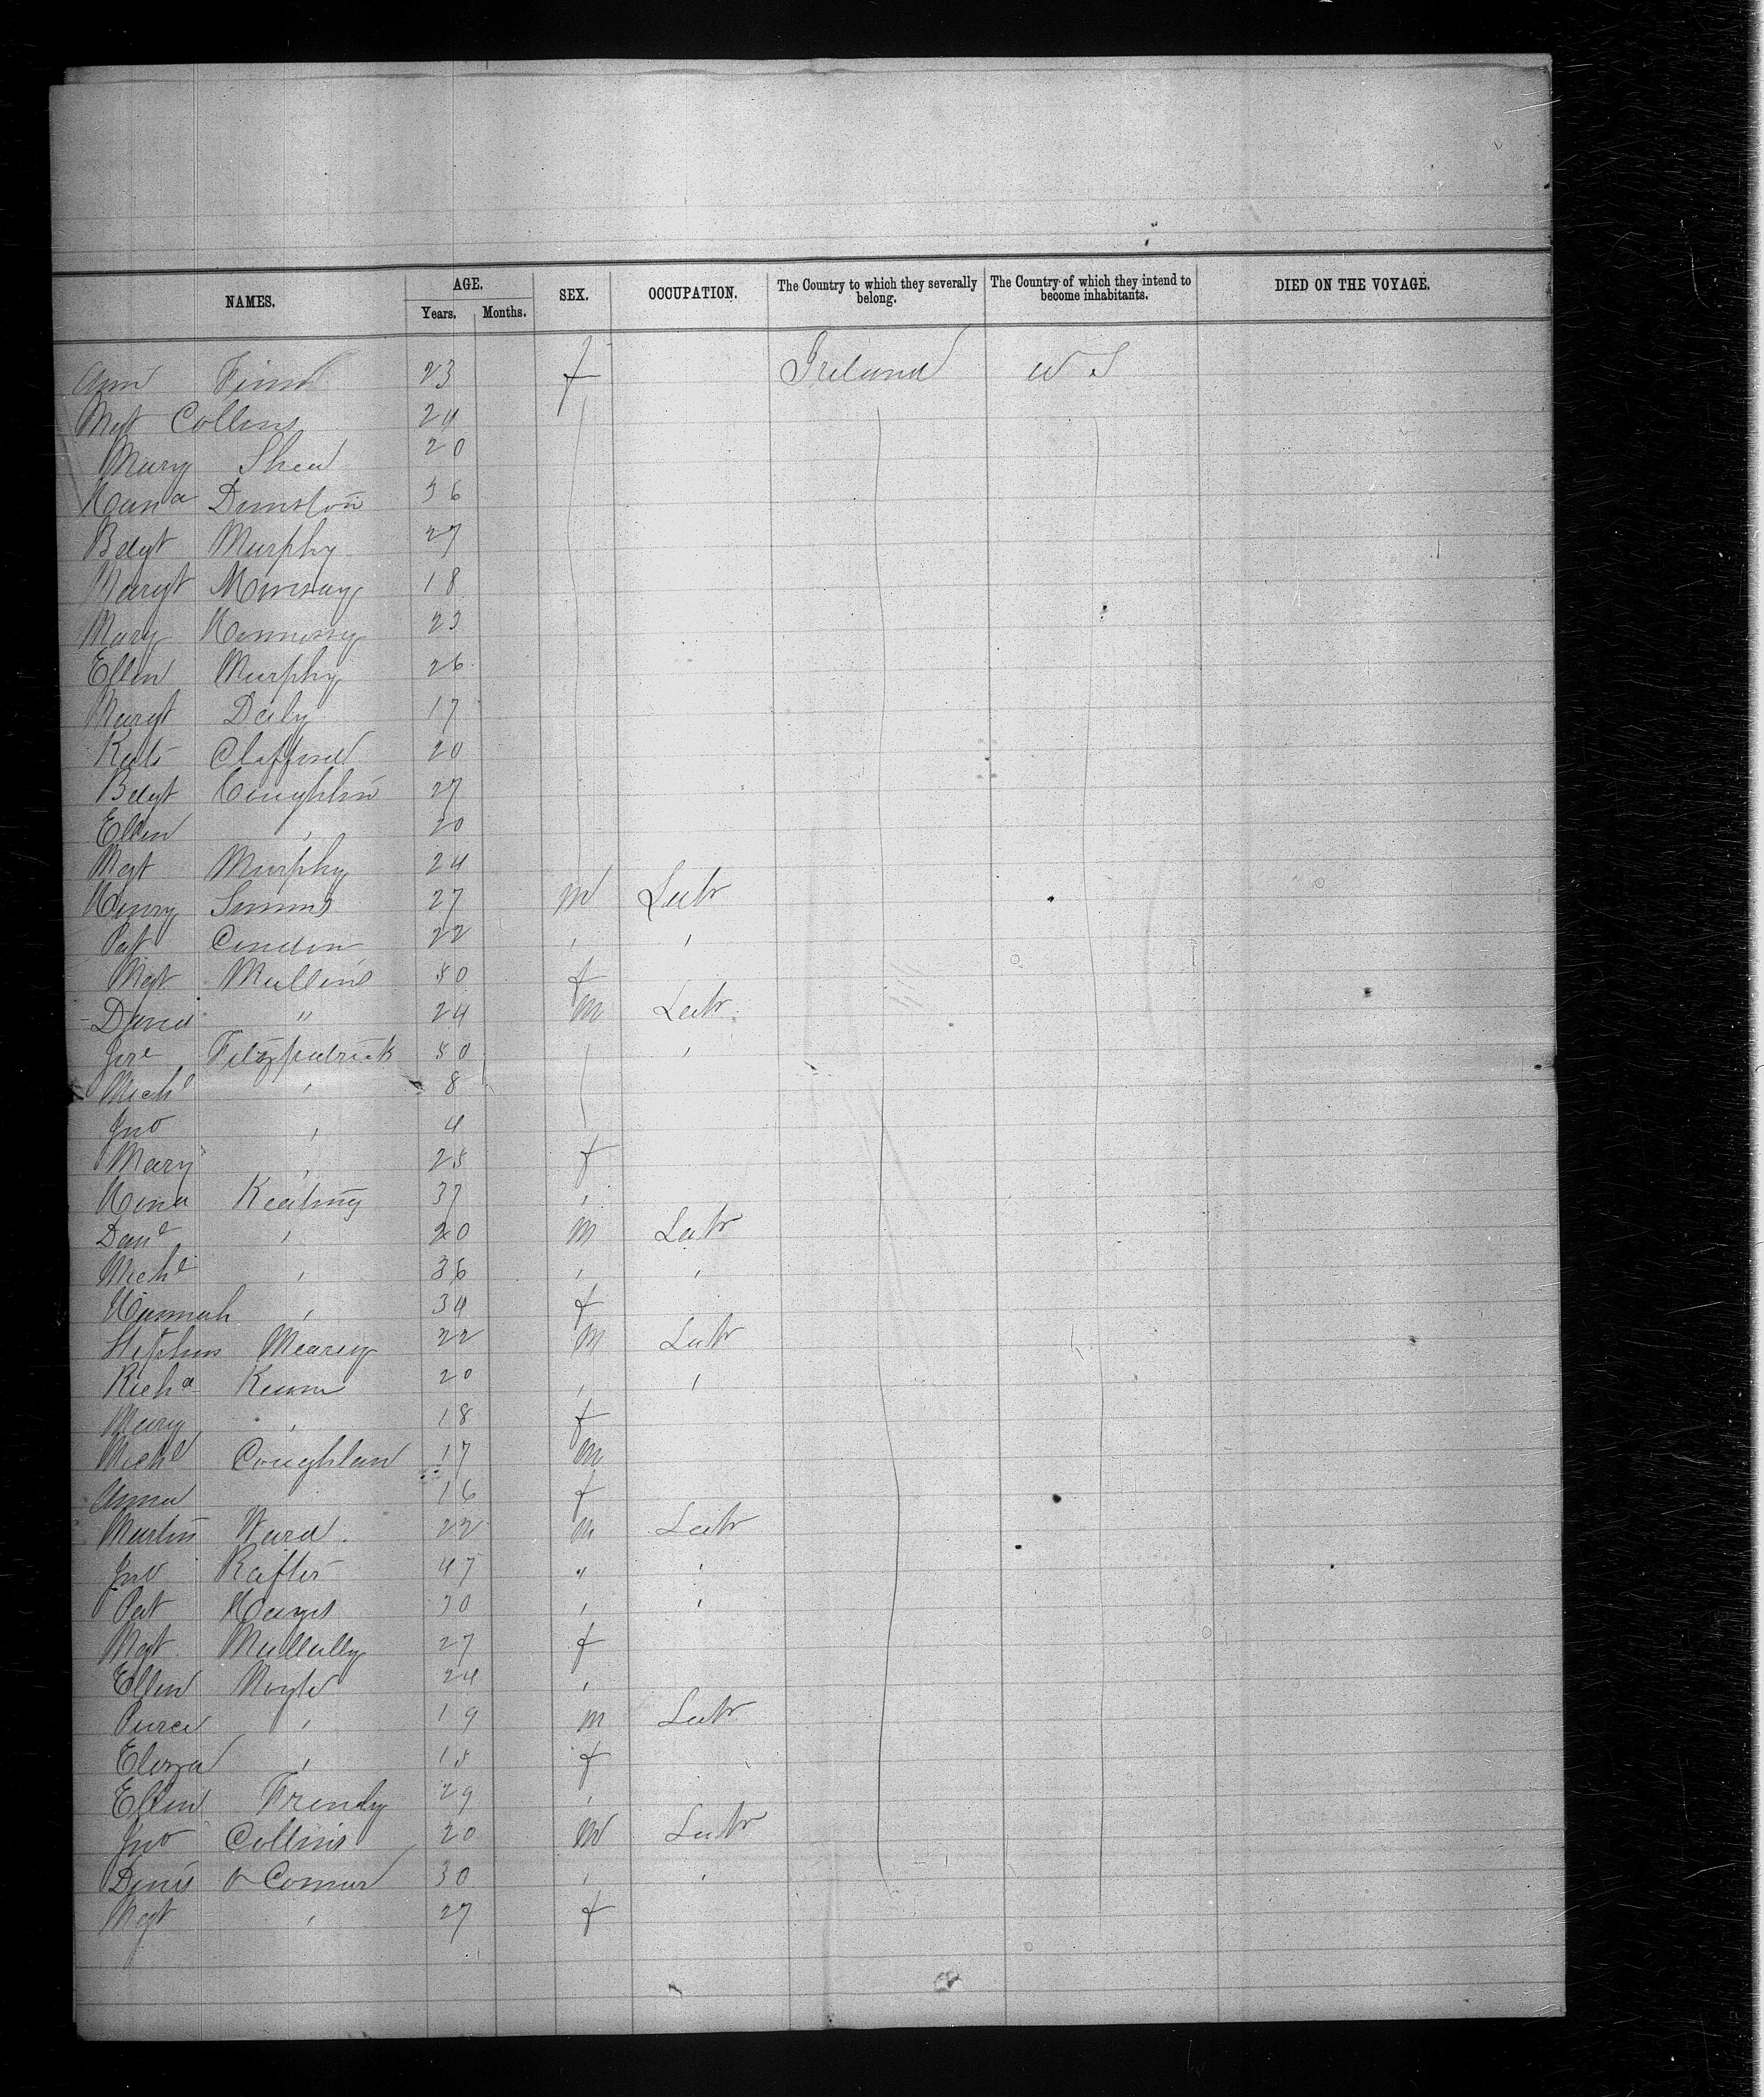 NAMES. AGE. Years. Months. SEX. OCCUPATION. The Country to which they severally belong. The Country of which they intend to become inhabitants. DIED ON THE VOYAGE.
Ann Finn 23 f Ireland U S
Mgt Collins 24
Mary Shea 20
Hana 36
Bdgt Murphy 27
Margt 18
Mary Hennessy 23
Ellen Murphy 26
Margt Daly 17
Kate 20
Bdgt Coughlin 27
Ellen , 20
Mgt Murphy 24
Henry Simms 27 M Labr
Pat Condon 22 , ,
Mgt Mullins 50 f
David " 24 M Labr
Fitzpatrick 50 ,
Michl , 8
Jno , 4
Mary , 25 f
Hona Keating 37 ,
Danl , 20 M Labr
Michl , 36 , ,
Hannah , 34 f
Stephen 22 M Labr
Richd 20 , ,
Mary , 18 f
Michl Coughlan 17 M
Anna 16 f
Martin Ward 22 M Labr
Jno Rafter 47 " ,
Pat Hayes 30 , ,
Mgt Mullally 27 f
Ellen 24 ,
Pierce , 19 M Labr
Eliza , 18 f
Ellen Trendy 29 ,
Jno Collins 20 M Labr
Denis O Connor 30 , ,
Mgt , 27 f